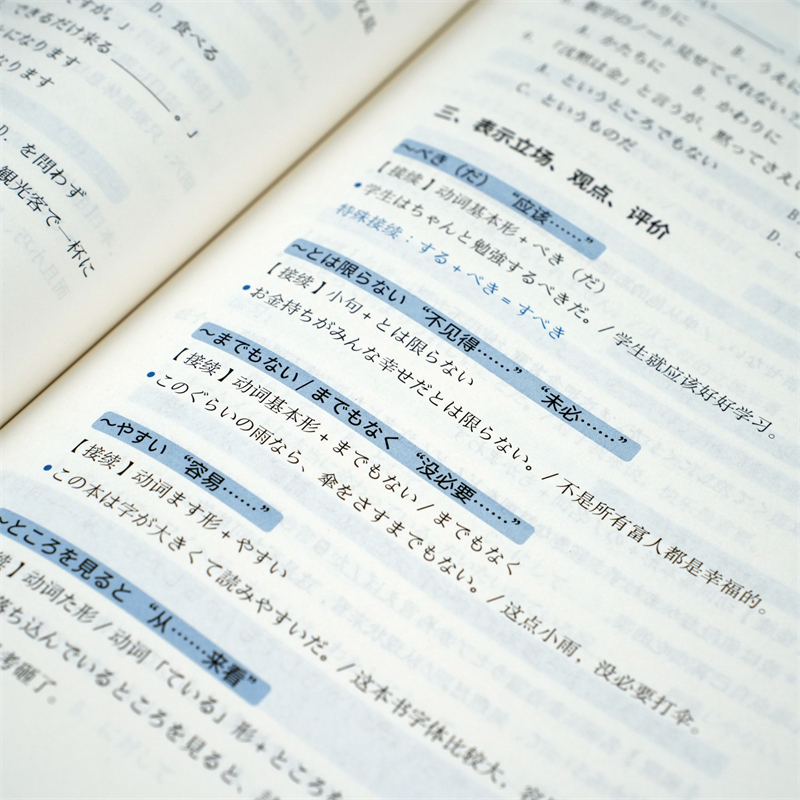 すが。」
D. 食べる
できるだけ来る＿＿＿。」
になります
なります
D. を問わず
観光客で一杯に
わりに
B. うえに
数学のノート見せてくれない？
A. かたちに B. かわりに
「沈黙は金」と言うが、黙ってさえい
A. というところでもない
C. というものだ
三、表示立场、观点、评价
～べき（だ） “应该……”
【接续】动词基本形+べき（だ）
•学生はちゃんと勉強するべきだ。/ 学生就应该好好学习。
特殊接续：する+べき=すべき
～とは限らない “不见得……” “未必……”
【接续】小句+とは限らない
•お金持ちがみんな幸せだとは限らない。/ 不是所有富人都是幸福的。
～までもない / までもなく “没必要……”
【接续】动词基本形+までもない / までもなく
•このぐらいの雨なら、傘をさすまでもない。/ 这点小雨，没必要打伞。
～やすい “容易……”
【接续】动词ます形+やすい
•この本は字が大きくて読みやすいだ。/ 这本书字体比较大，容
～ところを見ると “从……来看”
续】动词た形 / 动词「ている」形+ところを
落ち込んでいるところを見ると、
考砸了。